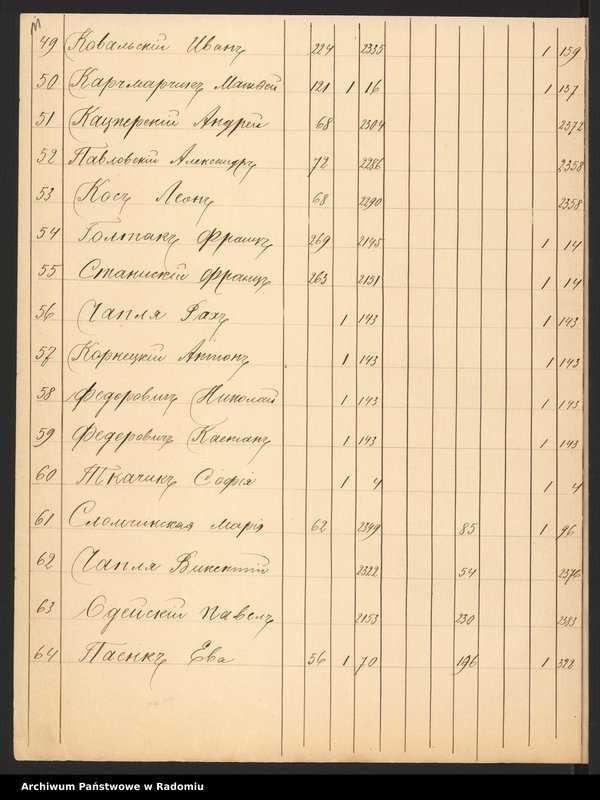 49 Ковальскій Иванъ 224 2335 1 159
50 Карчмарчикъ Матвѣй 121 1 16 1 137
51 Кацперскій Андрей 68 2304 2372
52 Павловскій Александръ 72 2286 2358
53 Косъ Леонъ 68 2290 2358
54 Голтакъ Францъ 269 2145 1 14
55 Станискій Францъ 263 2151 1 14
56 Чапля Рахъ 1 143 1 143
57 Корнецкій Антонъ 1 143 1 143
58 Федеровичъ Николай 1 143 1 143
59 Федеровичъ Каетанъ 1 143 1 143
60 Ткачикъ Софія 1 4 1 4
61 Сломчинская Марія 62 2349 85 1 96
62 Чапля Викентій 2322 54 2376
63 Одейскій Павелъ 2153 230 2383
64 Паенкъ Ева 56 1 70 196 1 322
Archiwum Państwowe w Radomiu